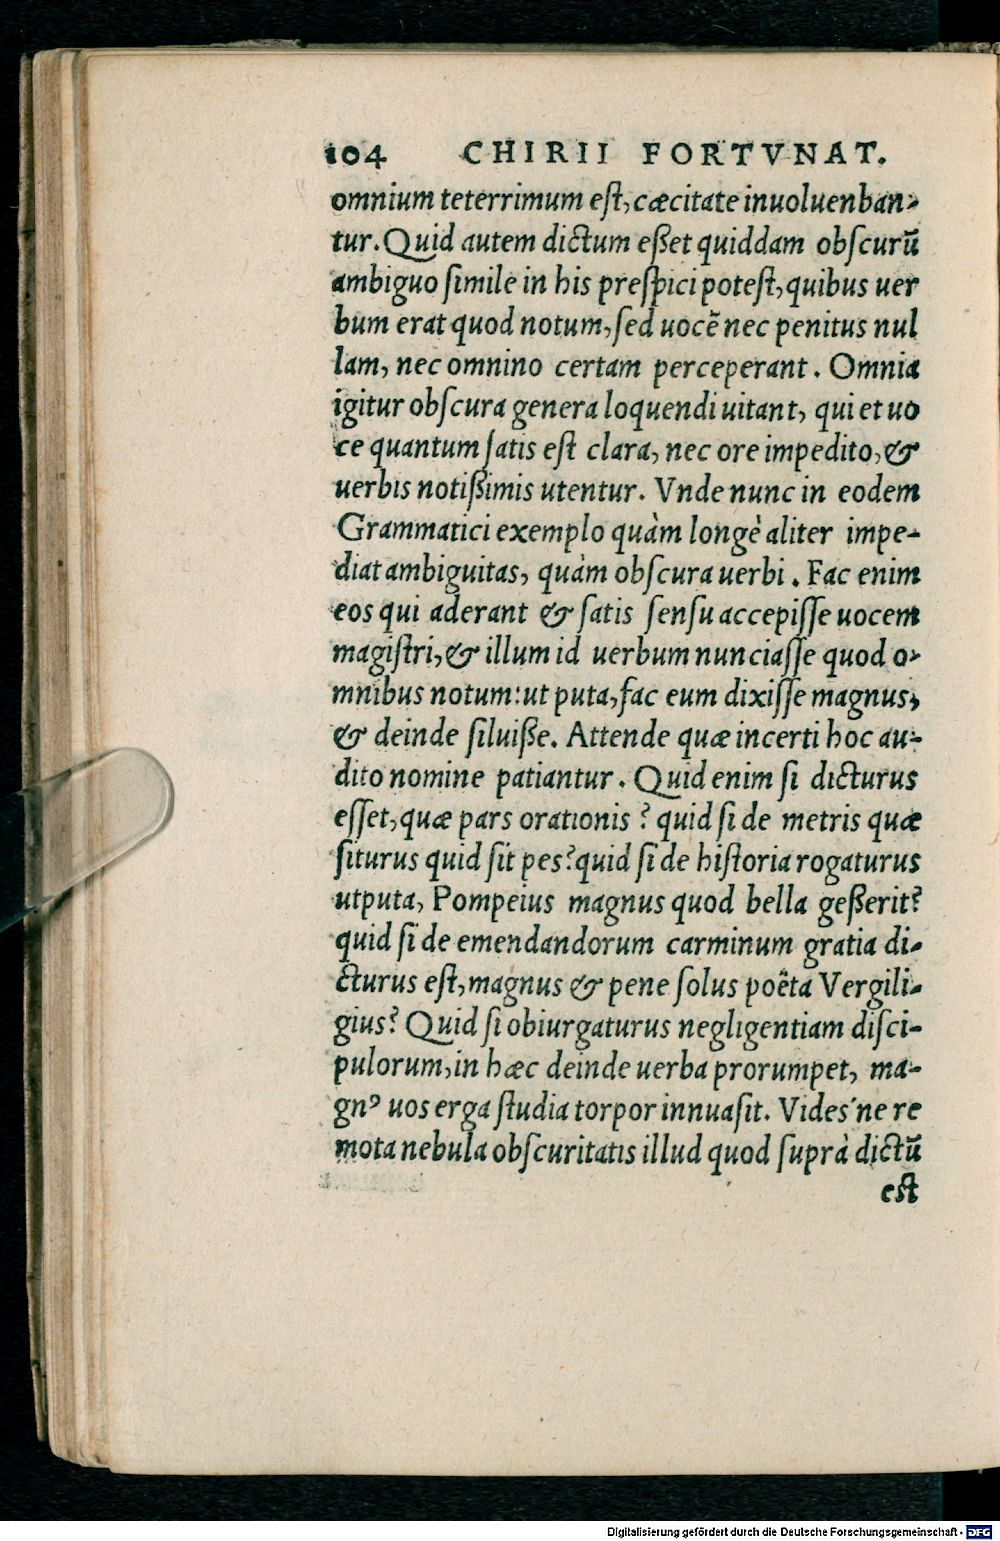 104 CHIRII FORTVNAT.
omnium teterrimum eſt, cæcitate inuoluenban-
tur. Quid autem dictum eßet quiddam obſcurū
ambiguo ſimile in his preſpici poteſt, quibus uer
bum erat quod notum, ſed uocē nec penitus nul
lam, nec omnino certam perceperant. Omnia
igitur obſcura genera loquendi uitant, qui et uo
ce quantum ſatis eſt clara, nec ore impedito, &
uerbis notißimis utentur. Vnde nunc in eodem
Grammatici exemplo quàm longè aliter impe-
diat ambiguitas, quàm obſcura uerbi. Fac enim
eos qui aderant & ſatis ſenſu accepiſſe uocem
magiſtri, & illum id uerbum nunciaſſe quod o-
mnibus notum: ut puta, fac eum dixiſſe magnus,
& deinde ſiluiße. Attende quæ incerti hoc au-
dito nomine patiantur. Quid enim ſi dicturus
eſſet, quæ pars orationis? quid ſi de metris quæ
ſiturus quid ſit pes? quid ſi de hiſtoria rogaturus
utputa, Pompeius magnus quod bella geßerit?
quid ſi de emendandorum carminum gratia di-
cturus eſt, magnus & pene ſolus poëta Vergili-
gius? Quid ſi obiurgaturus negligentiam diſci-
pulorum, in hæc deinde uerba prorumpet, ma-
gnꝰ uos erga ſtudia torpor innuaſit. Vides'ne re
mota nebula obſcuritatis illud quod ſuprà dictū
eſt
Digitalisierung gefördert durch die Deutsche Forschungsgemeinschaft - DFG